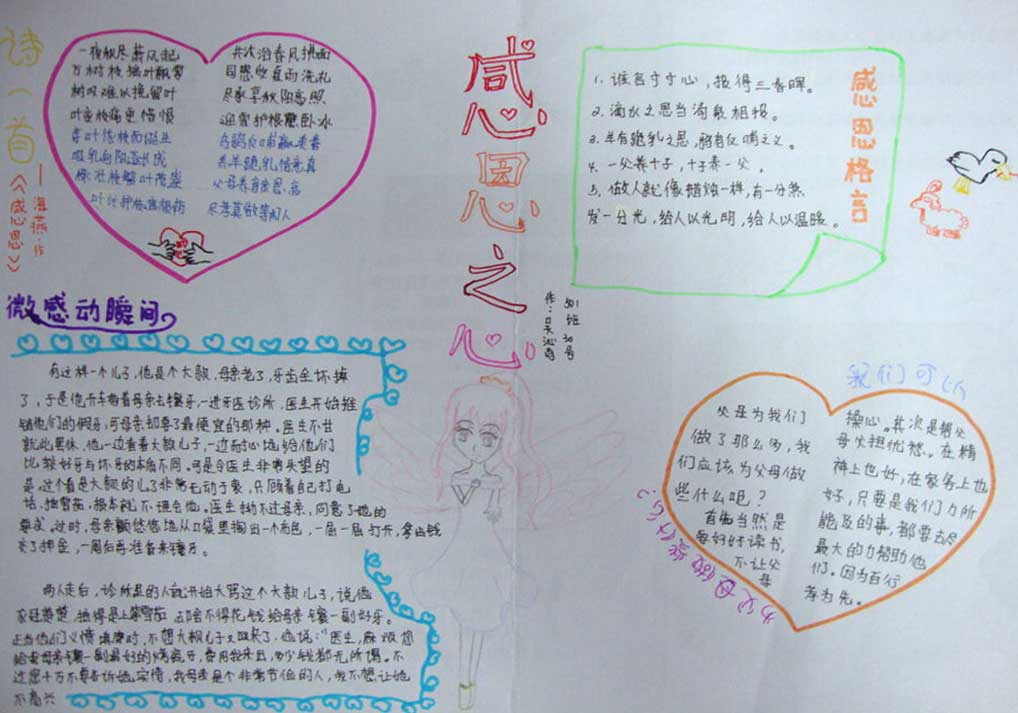 感恩之心
诗一首
——海燕·作
《感恩》
一夜秋尽薪风起
万树枝摇叶飘零
树风难以挽留叶
叶离枝痛更惜恨
共沐浴春风拂面
同感受夏雨洗礼
尽享秋阳高照
迎雪护根戏卧冰
父母养育
尽孝莫做等闲人
感恩格言
1. 谁言寸寸心，报得三春晖。
2. 滴水之恩当涌泉相报。
3. 羊有跪乳之恩，鸦有反哺之义。
4. 一父养十子，十子养一父。
5. 做人就像蜡烛一样，有一分热
发一分光，给人以光明，给人以温暖。
501班30号
作：吴沁
微感动瞬间
有这样一个儿子，他是个大款，母亲老了，牙齿全坏掉
了，于是他开车带着母亲去镶牙，一进牙医诊所，医生开始推
销他们的假牙，可母亲却要了最便宜的那种。医生不甘
就此罢休，他一边看着大款儿子，一边耐心地给他们
比较好牙与坏牙的本质不同。可是令医生非常失望的
是，这个看是大款的儿子非常无动于衷，只顾着自己打电
话，抽雪茄，根本就不理会他。医生拗不过母亲，同意了她的
要求。这时，母亲颤悠悠地从口袋里掏出一个布包，一层一层打开，拿出钱
交了押金，一周后再准备来镶牙。
两人走后，诊所里的人就开始大骂这个大款儿子，说他
衣冠楚楚，抽得是上等雪茄，却舍不得花钱给母亲镶一副好牙。
正当他们义愤填膺时，不想大款儿子又回来了，他说："医生，麻烦您
给我母亲镶一副最好的烤瓷牙，费用我来出，多少钱都无所谓。不
过您千万不要告诉她实情，我母亲是个非常节俭的人，我不想让她
不高兴
我们可以
为父母做些什么?
父母为我们
做了那么多，我
们应该为父母做
些什么呢？
首先当然是
要好好读书，
不让父
母
操心。其次是帮父
母父担忧愁。在精
神上也好，在家务上也
好，只要是我们力所
能及的事，都要去尽
最大的力帮助他
们。因为百行
孝为先。